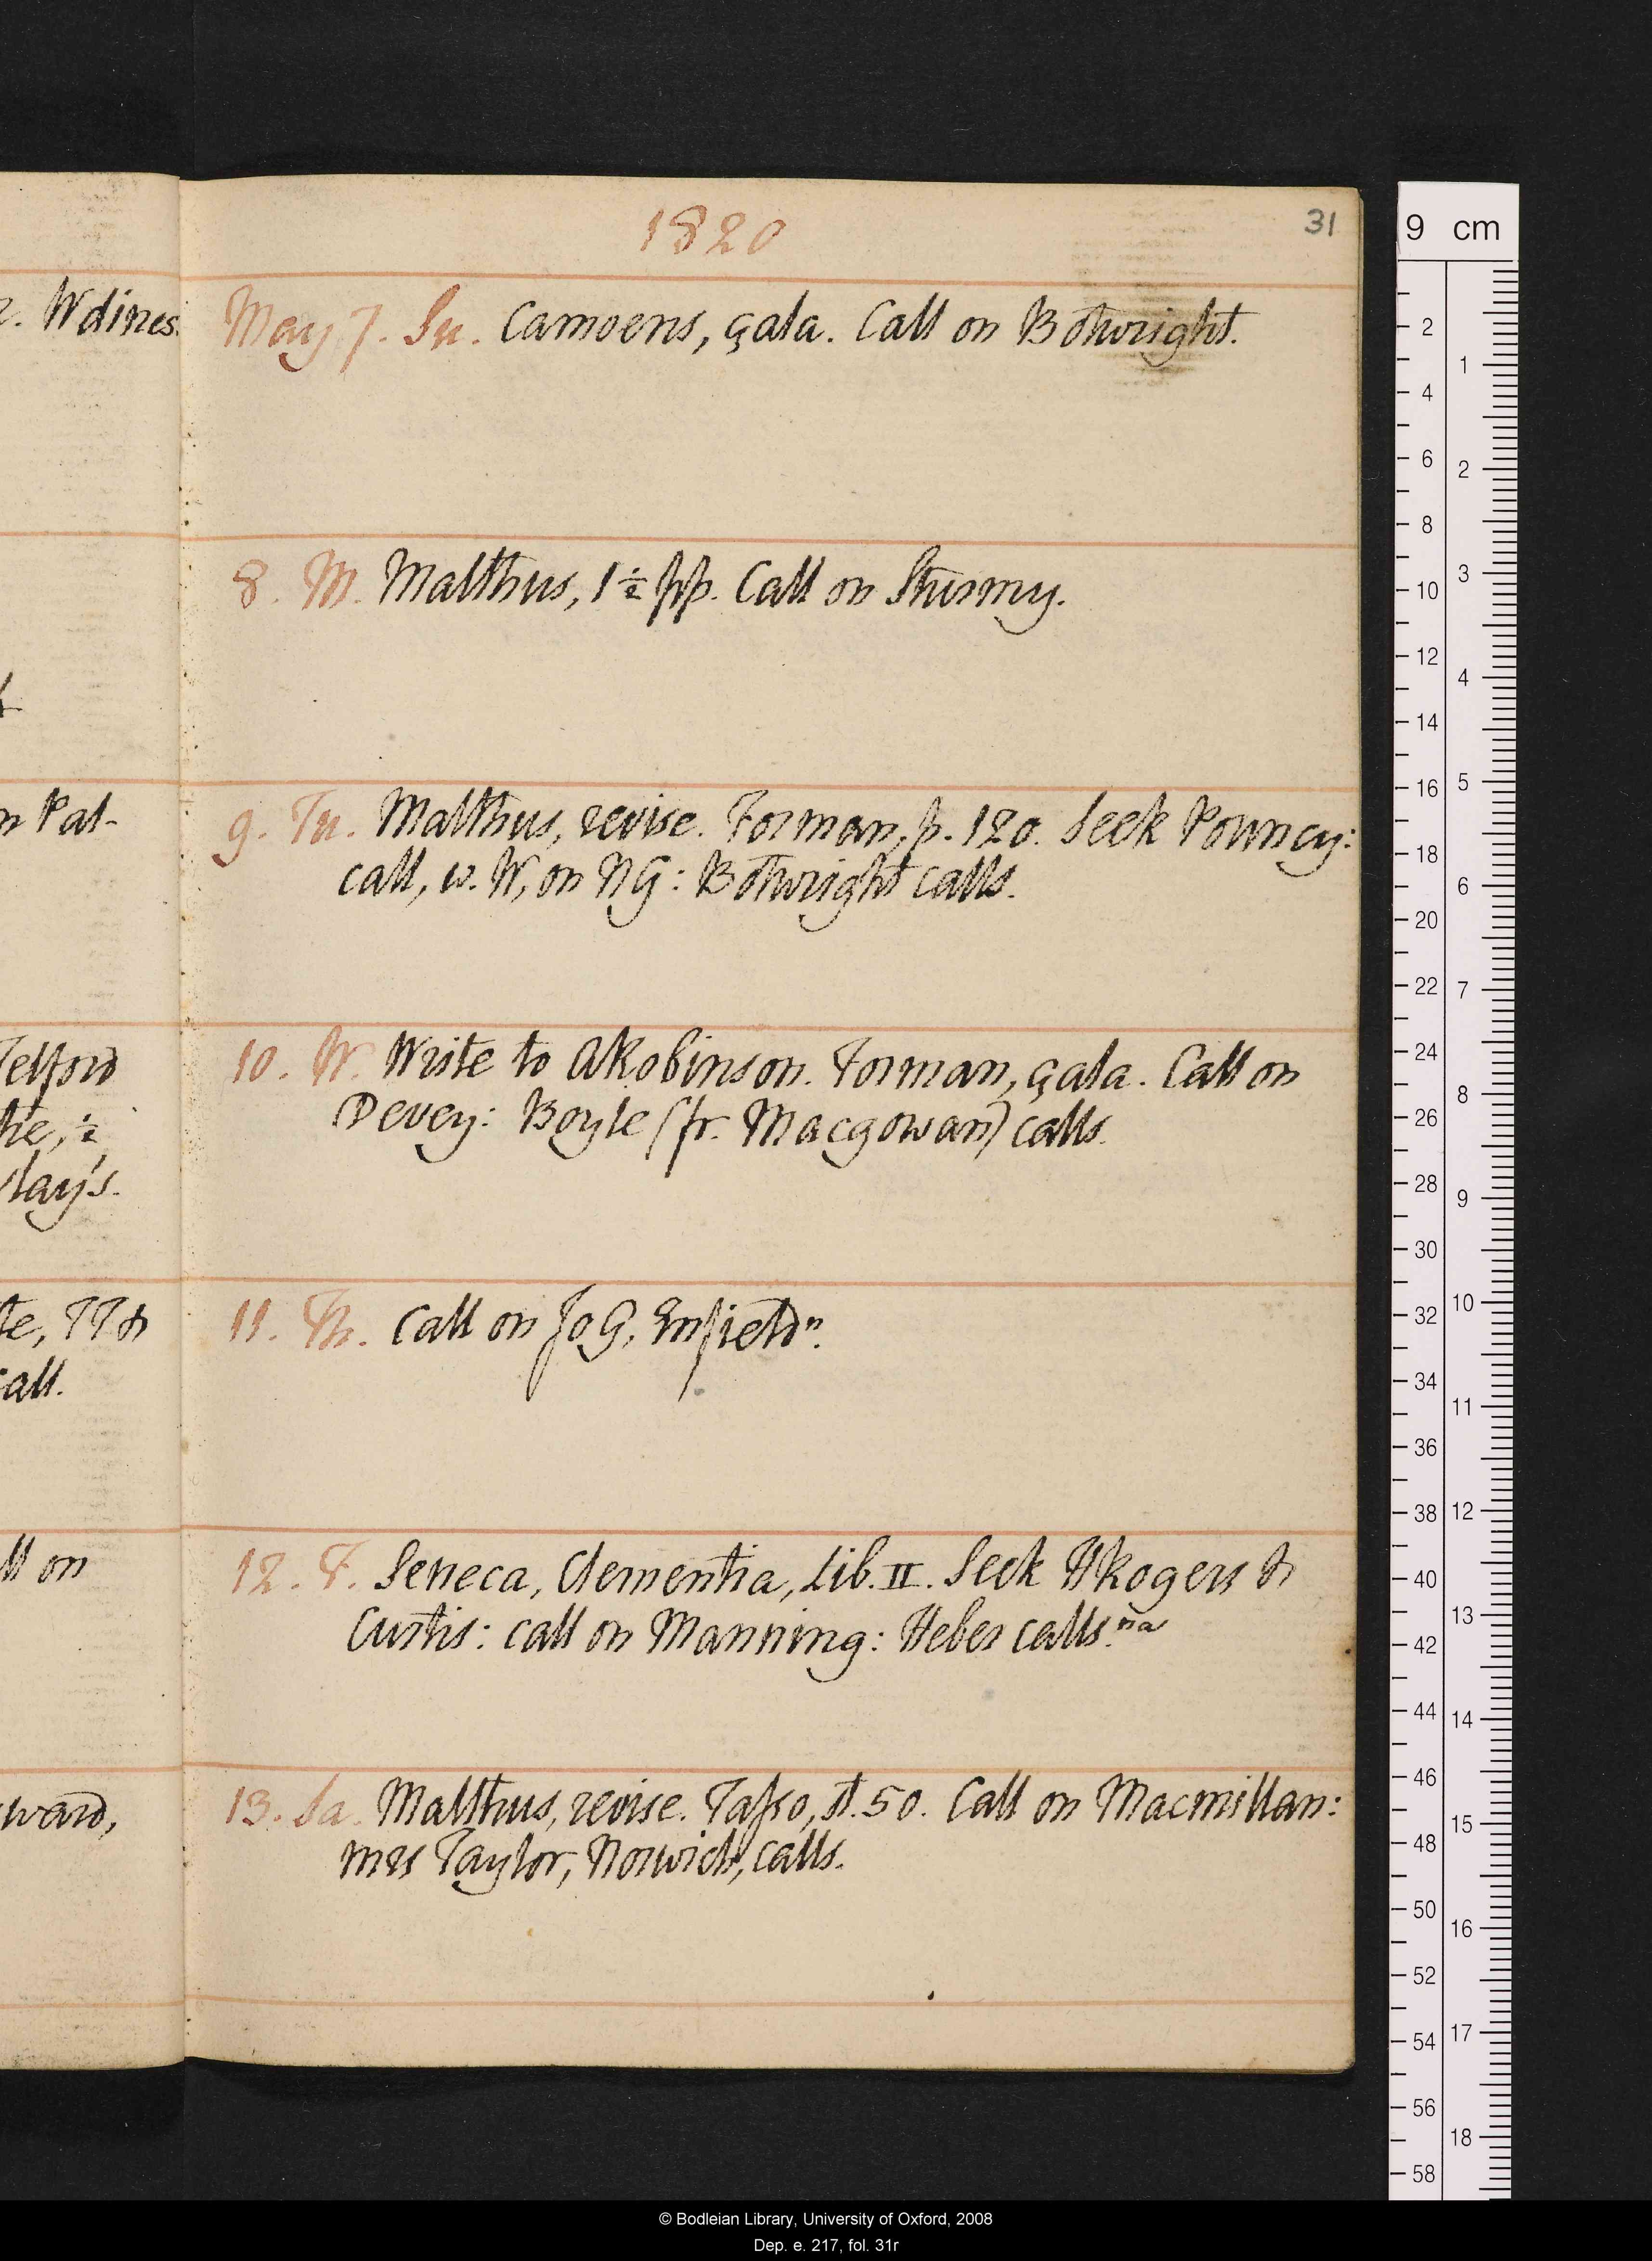 1820
31
May 7. Su. Camoens, çala. Call on Bothwright.
8. M. Malthus, 1½ pp. Call on Sturmy.
9. Tu. Malthus, revise. Forman, p. 120. Seek Pouncy:
call, w. W, on NG: Bothwright calls.
10. W. Write to ARobinson. Forman, çala. Call on
Devey: Boyle (fr. Macgowan) calls.
11. Th. Call on JoG, Enfield n.
12. F. Seneca, Clementia, Lib. II. Seek HRogers &
Curtis: call on Manning: Heber calls. na
13. Sa. Malthus, revise. Tasso, st. 50. Call on Macmillan:
mrs Taylor, Norwich, calls.
W dines.
n Pal-
Telford
lay's.
all.
ll on
ward,
9 cm
2 4 6 8 10 12 14 16 18 20 22 24 26 28 30 32 34 36 38 40 42 44 46 48 50 52 54 56 58
1 2 3 4 5 6 7 8 9 10 11 12 13 14 15 16 17 18
© Bodleian Library, University of Oxford, 2008
Dep. e. 217, fol. 31r